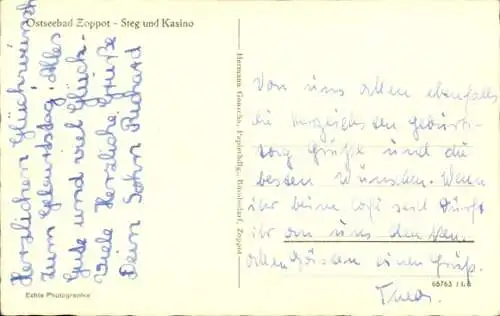 Ostseebad Zoppot - Steg und Kasino
Herzlichen Glückwunsch
zum Geburtstag, Alles
Gute und viel Glück.
Viele Herzliche Grüße
Dein Sohn Richard
Hermann Papierhdlg., Zoppot
Von uns allen ebenfalls
die herzlichsten Geburts-
tag Grüße und die
besten Wünschen. Wenn
ihr beim seid dürft
ihr an uns denken.
allen einen Gruß.
Echte Photographie
65763